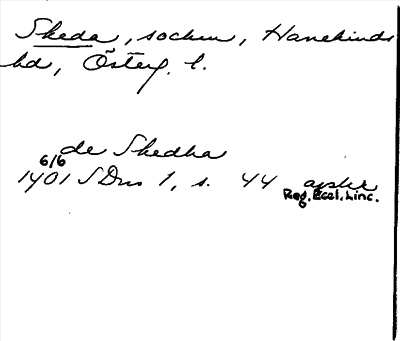 Skeda, socken, Hanekinds
hd, Österg. l.
de Skedha
6/6
1401 SDns 1, s. 44 avskr
Reg. Eccl. Linc.